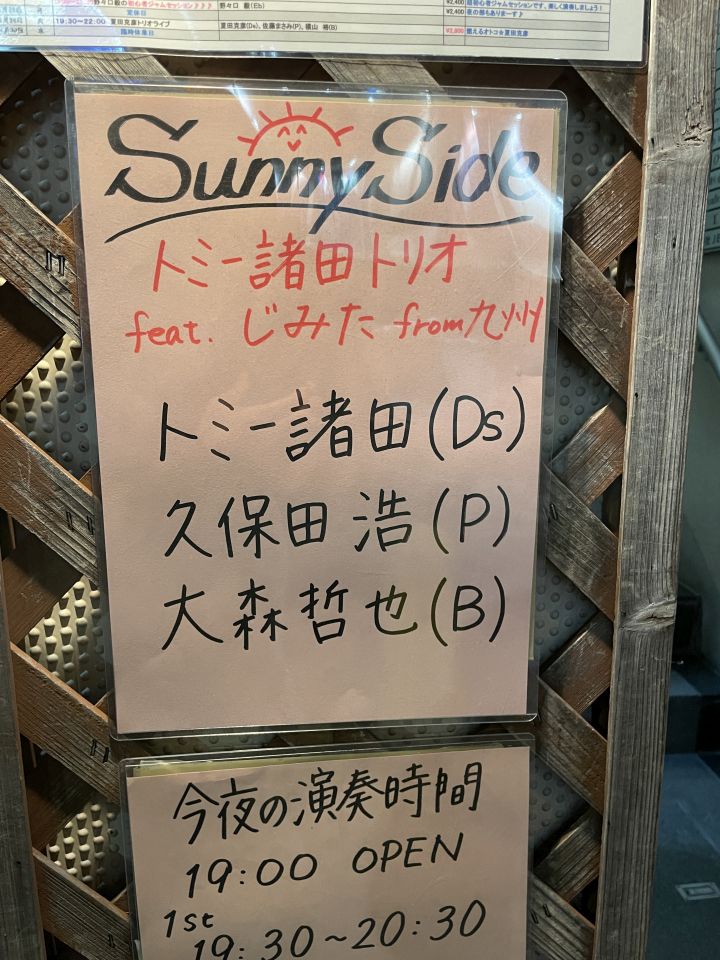 野々口 毅(Eb) ¥2,400
定休日 ¥2,400 夜の部もあります♪
19:30~22:00 夏田克彦トリオライブ 夏田克彦(Ds)、佐藤まさみ(P)、横山 裕(B)
水 臨時休業日 ¥2,800 燃えるオトコ★夏田克彦
Sunny Side
トミー諸田トリオ
feat. じみた from九州
トミー諸田(Ds)
久保田 浩(P)
大森哲也(B)
今夜の演奏時間
19:00 OPEN
1st
19:30~20:30